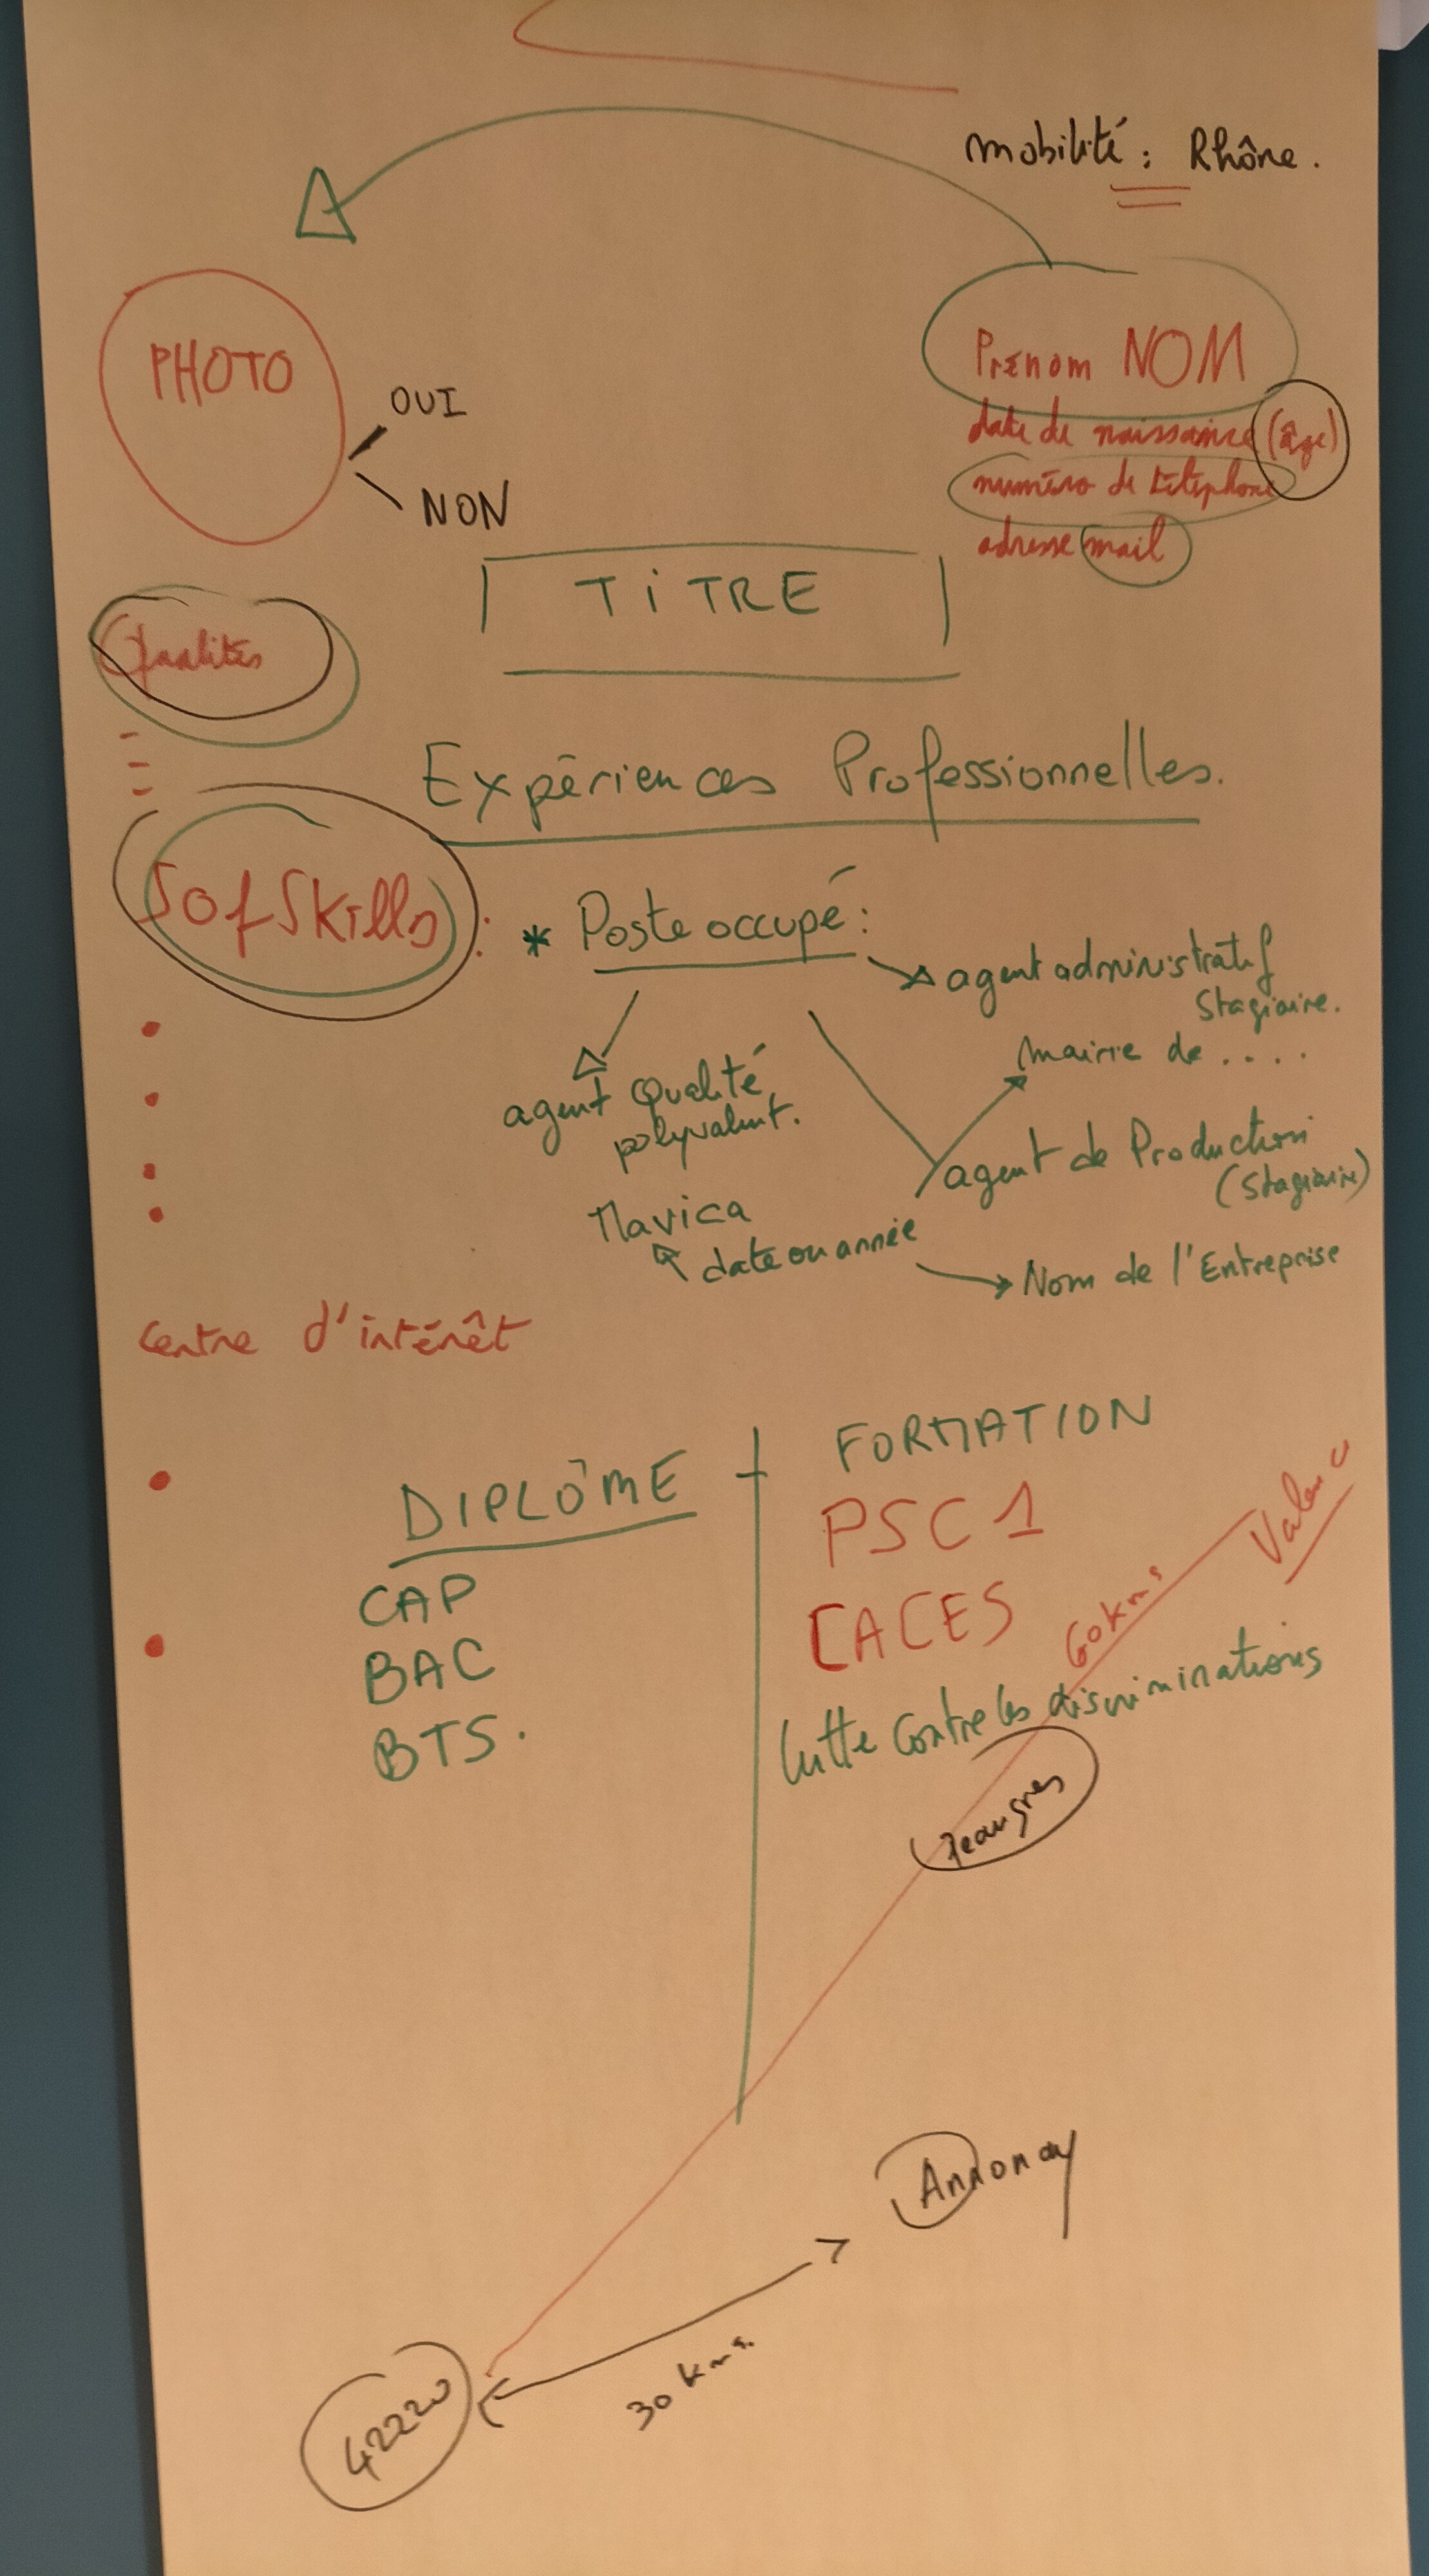 mobilité : Rhône.
PHOTO
OUI
NON
Prénom NOM
date de naissance (âge)
numéro de téléphone
adresse mail
TiTRE
Qualités
-
-
-
Expériences Professionnelles.
SofSkills :
* Poste occupé :
agent administratif
Stagiaire.
mairie de ....
agent Qualité
polyvalent.
agent de Production
(Stagiaire)
Mavica
date ou année
Nom de l'Entreprise
Centre d'intérêt
DIPLÔME
CAP
BAC
BTS.
FORMATION
PSC 1
CACES
lutte contre les discriminations
Valence
60 kms
Peaugres
Annonay
30 kms.
42220